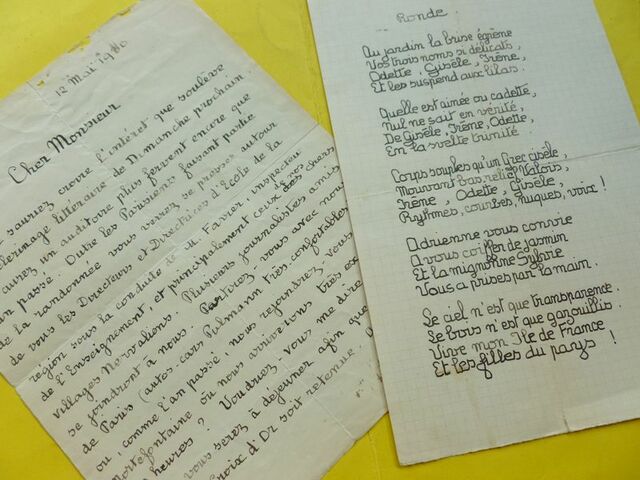 12 Mai 19
Cher Monsieur
sauriez croire l'intérêt que soulève
littéraire de Dimanche prochain
aurez un auditoire plus fervent encore que
an passé. Outre les Parisiens faisant partie
de la randonnée vous verrez se presser autour
de vous les Directeurs et Directrices d'Ecole de la
région sous la conduite de M. Favrer, inspecteur
de l'Enseignement, et principalement ceux de nos chers
villages Nervaliens. Plusieurs journalistes amis
se joindront à nous. Partirez vous avec nous
de Paris (autos-cars Pulmann très confortables
ou, comme l'an passé, nous rejoindrez vous
Mortefontaine où nous arriverons très
heures ? Voudriez vous me dire
vous serez à déjeuner afin que
Croix d'Or soit retenue.
Ronde.
Au jardin la brise égrène
Vos trois noms si délicats,
Odette, Gisèle, Irène,
Et les suspend aux lilas.
Quelle est aînée ou cadette,
Nul ne sait en vérité,
De Gisèle, Irène, Odette,
En la svelte trinité.
Corps souples qu'un Grec cisèle,
Mouvant bas-relief Valois,
Irène, Odette, Gisèle,
Rythmes, courbes, nuques, voix !
Adrienne vous convie
A vous coiffer de jasmin
Et la mignonne Sylvie
Vous a prises par la main.
Le ciel n'est que transparence.
Le bois n'est que gazouillis.
Vive mon Ile de France
Et les filles du pays !